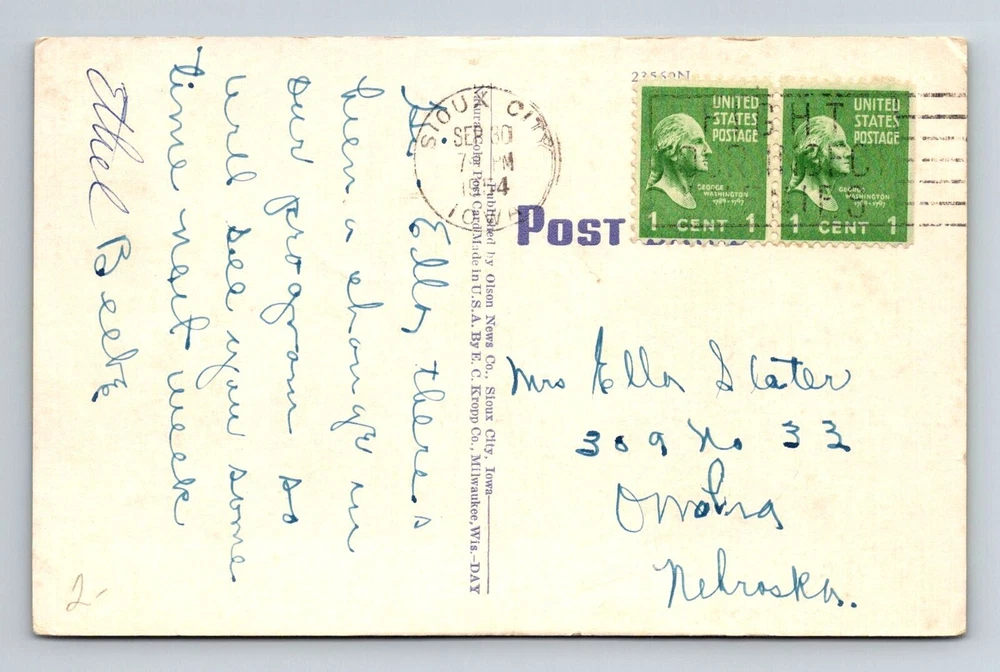 Hi. Ella, there.s
been a change in
our program so
will see you some
time next week
Ethel Beebe
2-
Published by Olson News Co., Sioux City, Iowa—
Natural Color Post Card Made in U.S.A. By E. C. Kropp Co., Milwaukee, Wis.-DAY
23569N
SIOUX CITY
SEP 30
PM
IOWA
POST
UNITED
STATES
POSTAGE
GEORGE
WASHINGTON
1789-1797
1 CENT 1
UNITED
STATES
POSTAGE
GEORGE
WASHINGTON
1789-1797
1 CENT 1
Mrs Ella Slater
309 No 33
Omaha
Nebraska.